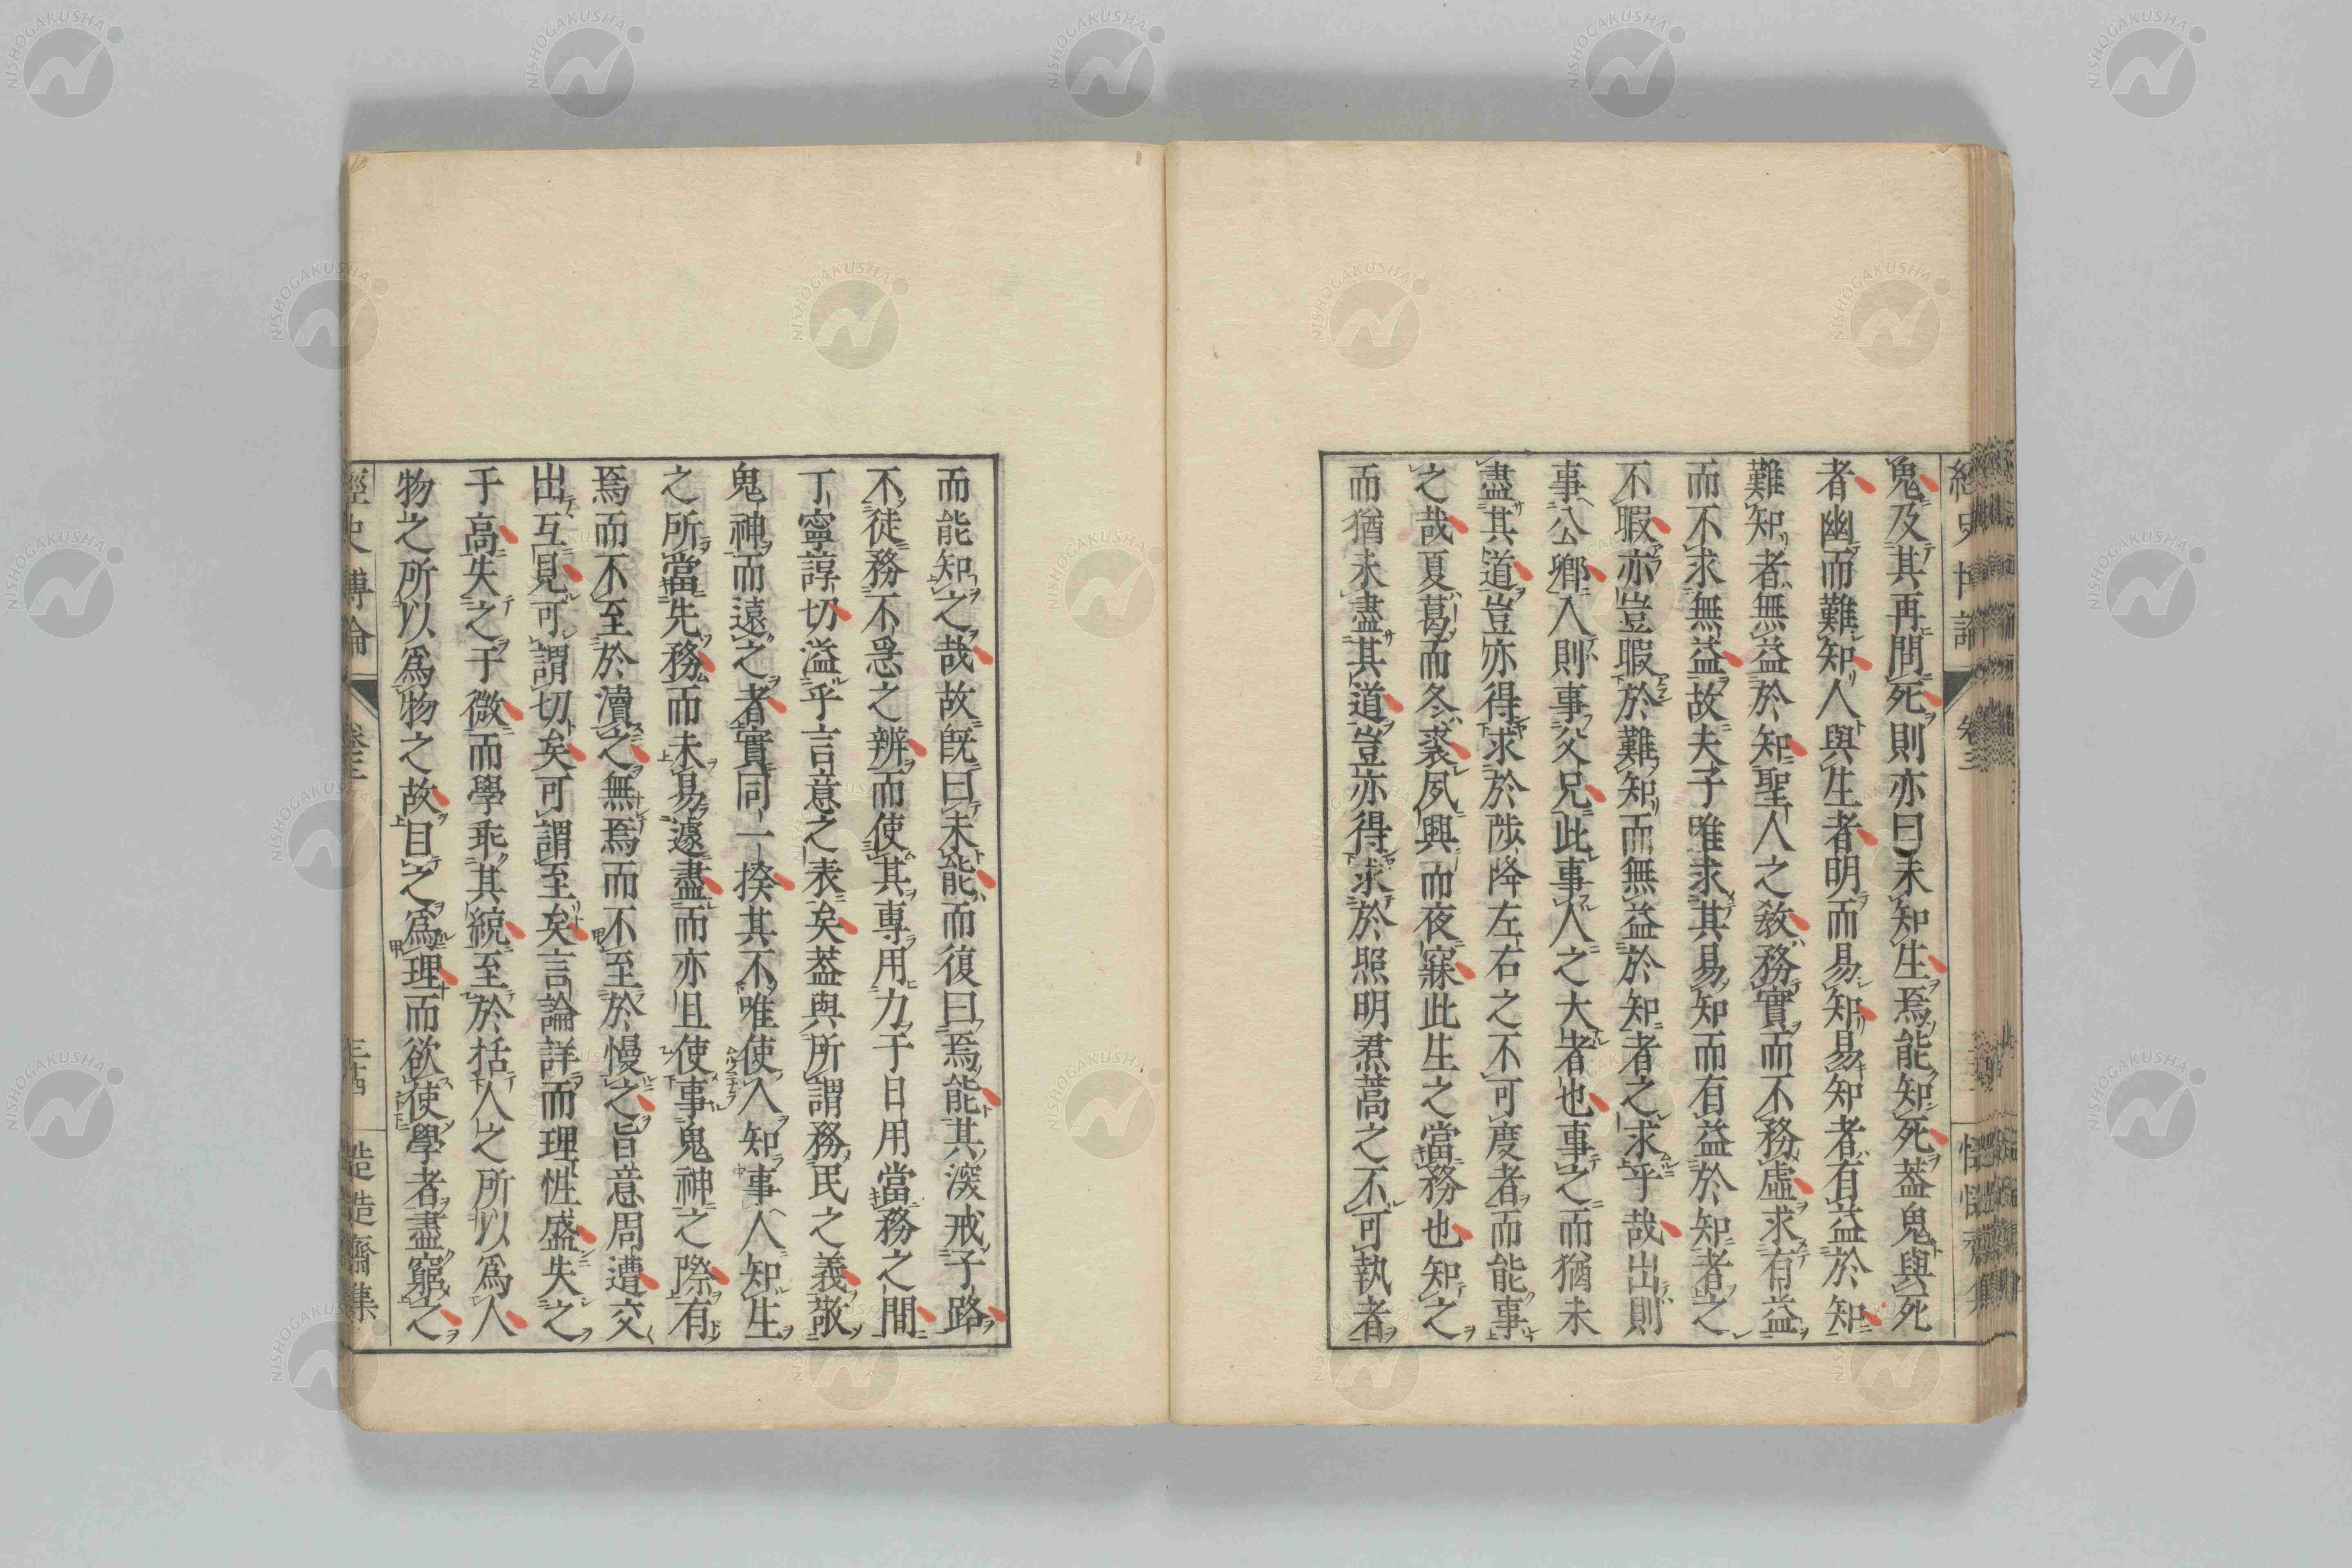 經史博論
卷三
鬼及其再問死則亦曰未知生焉能知死葢鬼與死
者幽而難知人與生者明而易知易知者有益於知
難知者無益於知聖人之敎務實而不務虛求有益
而不求無益故夫子唯求其易知而有益於知者之
不暇亦豈暇於難知而無益於知者之求乎哉出則
事公卿入則事父兄此事人之大者也事之而猶未
盡其道豈亦得求於陟降左右之不可度者而能事
之哉夏葛而冬裘夙興而夜寐此生之當務也知之
而猶未盡其道豈亦得求於照明焄蒿之不可執者
而能知之哉故旣曰未能而復曰焉能其深戒子路
不徒務不急之辨而使其專用力于日用當務之間
丁寧諄切溢乎言意之表矣葢與所謂務民之義敬
鬼神而遠之者實同一揆其不唯使人知事人知生
之所當先務而未易遽盡而亦且使事鬼神之際有
焉而不至於瀆之無焉而不至於慢之旨意周遭交
出互見可謂切矣可謂至矣言論詳而理性盛失之
于高失之于微而學乖其統至於括人之所以爲人
物之所以爲物之故目之爲理而欲使學者盡窮之
經史博論
卷三
三十四
造造齋集